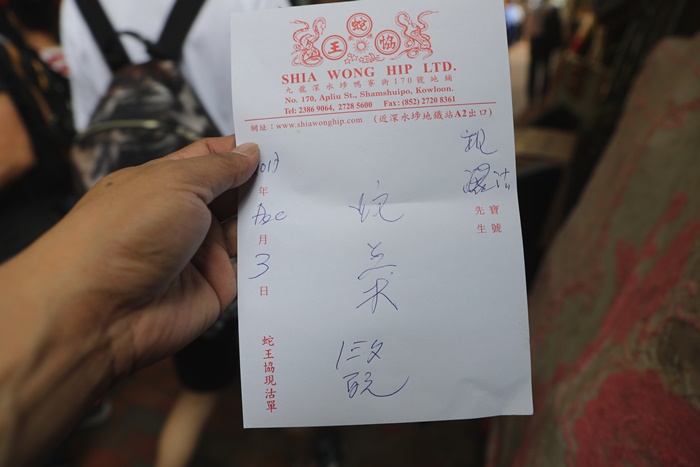 王 蛇 協
SHIA WONG HIP LTD.
九龍深水埗鴨寮街170號地舖
No. 170, Apliu St., Shamshuipo, Kowloon.
Tel: 2386 9064, 2728 5600 Fax: (852) 2720 8361
網址：www.shiawonghip.com （近深水埗地鐵站A2出口）
寶號
先生
蛇
年
月
3
日
蛇王協現沽單